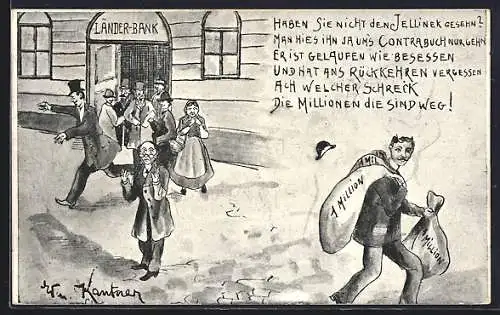 LÄNDER-BANK
HABEN SIE NICHT DEN JELLINEK GESEHN?
MAN HIES IHN JA UM'S CONTRABUCH NUR GEHN
ER IST GELAUFEN WIE BESESSEN
UND HAT ANS RÜCKKEHREN VERGESSEN
ACH WELCHER SCHRECK
DIE MILLIONEN DIE SIND WEG!
1 MIL
1 MILLION
MILLION
Kantner